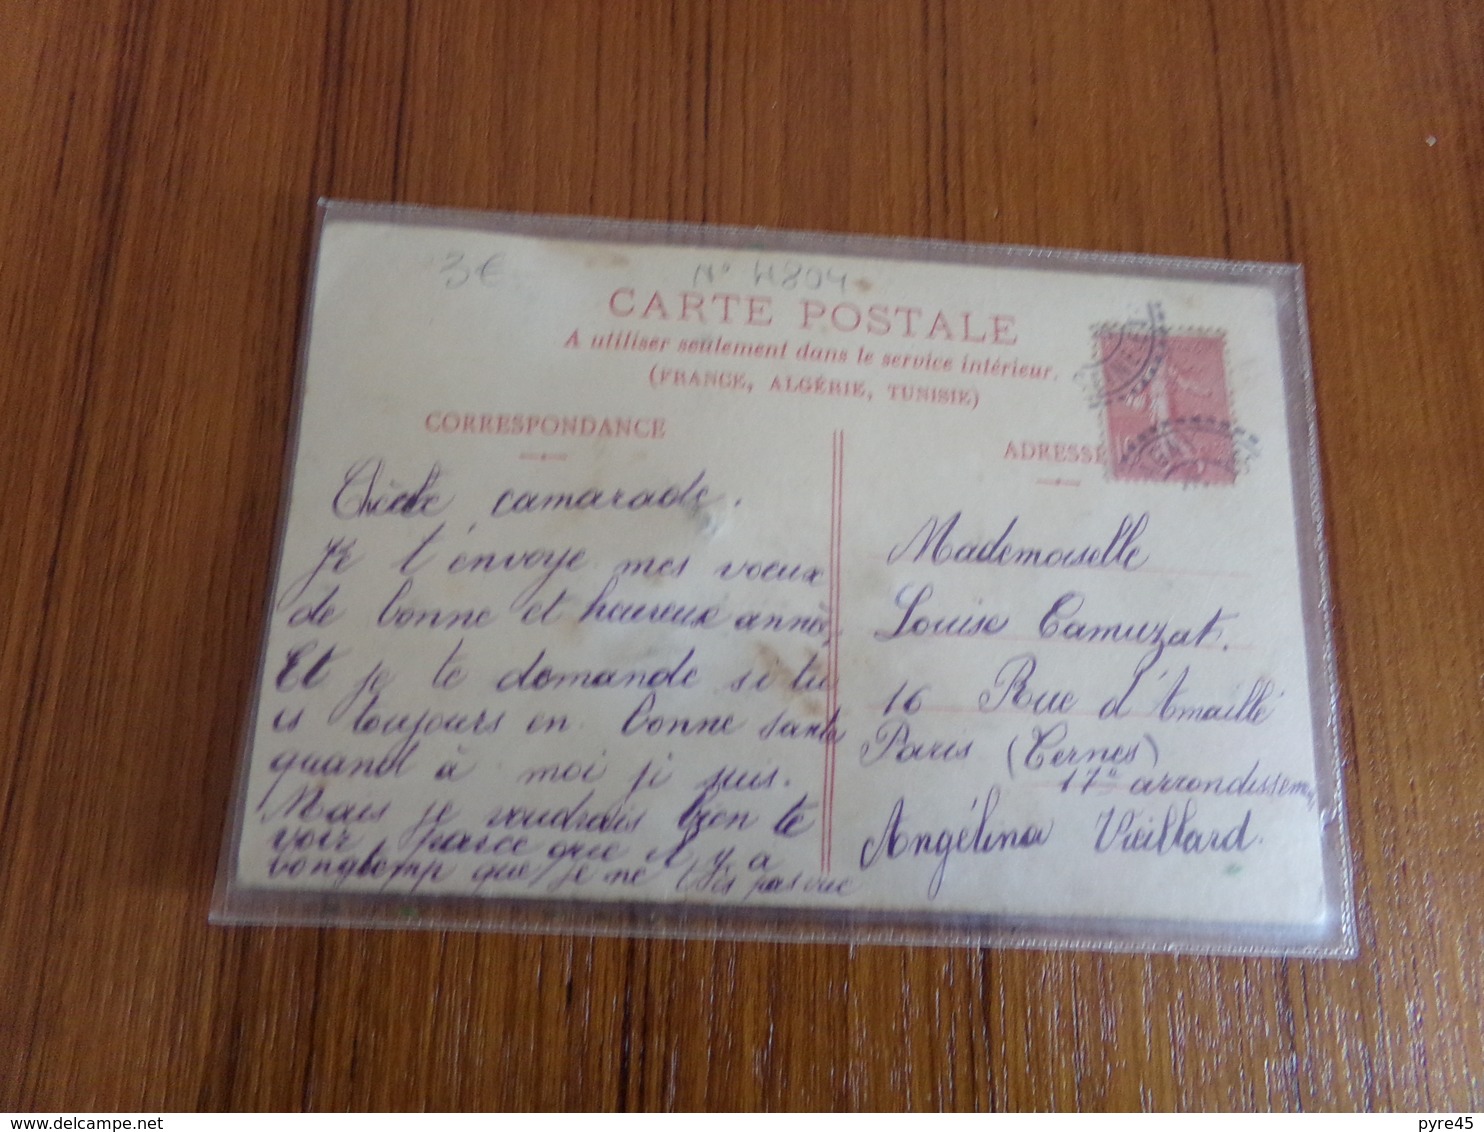 3€
N° H804
CARTE POSTALE
A utiliser seulement dans le service intérieur.
(FRANCE, ALGÉRIE, TUNISIE)
CORRESPONDANCE
camarade.
Je t'envoye mes voeux
de bonne et heureux année,
Et je te demande si tu
es toujours en bonne santé
quand à moi ji suis.
Mais je voudrais bien te
voir parce que il y a
longtemp que je ne pas vue
ADRESSE
Mademoiselle
Louise Camuzat.
16 Rue d'Amaillé
Paris (Ternes)
17e arrondissem
Angélina Vieillard.
delcampe.net
pyre45